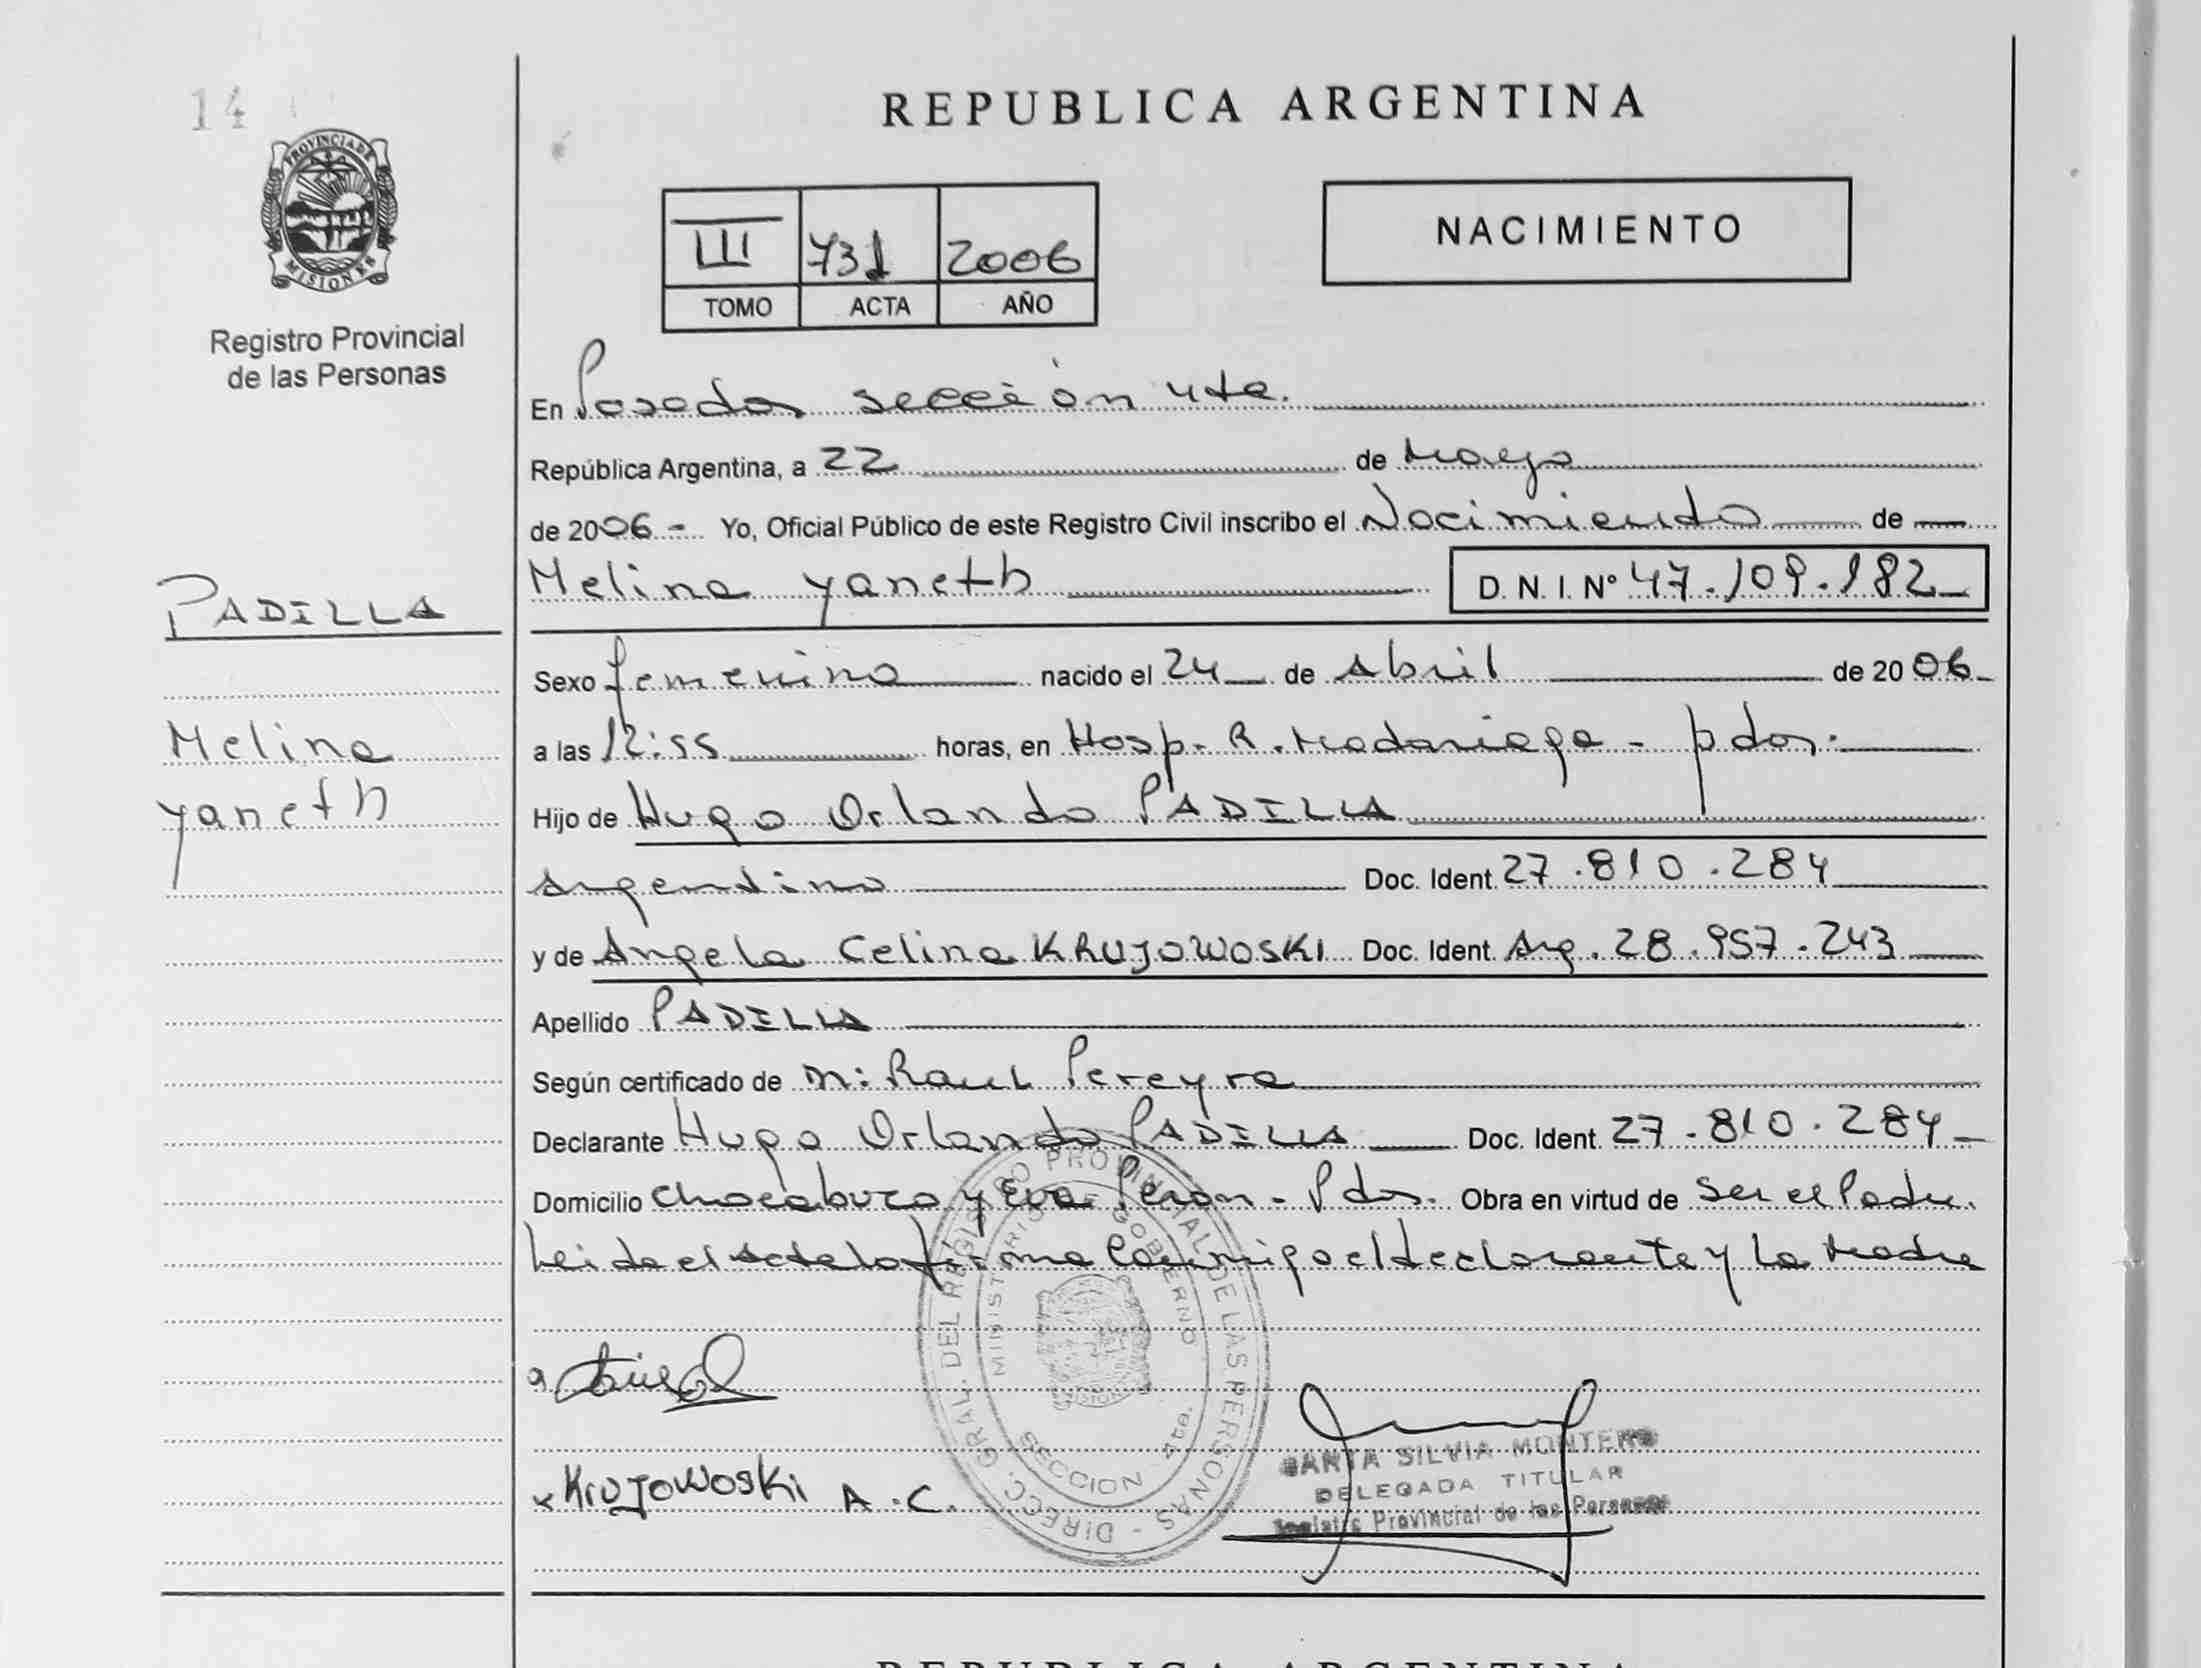 14
PROVINCIA DE
MISIONES
Registro Provincial
de las Personas
REPUBLICA ARGENTINA
III 731 2006
TOMO ACTA AÑO
NACIMIENTO
En Posadas sección 4ta.
República Argentina, a 22 de Mayo
de 2006 - Yo, Oficial Público de este Registro Civil inscribo el Nacimiento de
Melina yaneth D. N. I. Nº 47.109.182
PADILLA
Sexo femenino nacido el 24 de Abril de 2006
Melina
yaneth
a las 12:55 horas, en Hosp. R. Madariaga - pdas.
Hijo de Hugo Orlando PADILLA
Argentino Doc. Ident. 27.810.284
y de Angela Celina KRUJOWOSKI Doc. Ident. Arg. 28.957.243
Apellido PADILLA
Según certificado de M: Raul Pereyra
Declarante Hugo Orlando PADILLA Doc. Ident. 27.810.284
Domicilio Chacabuco y Eva Peron - Pdas. Obra en virtud de ser el Padre.
Leida el Acta la firma Conmigo el declarante y La Madre
DIRECC. GRAL. DEL REGISTRO PROVINCIAL DE LAS PERSONAS -
MINISTERIO DE GOBIERNO
SECCION 4ta.
MISIONES
Krujowoski A.C.
SANTA SILVIA MONTERO
DELEGADA TITULAR
Registro Provincial de las Personas
REPUBLICA ARGENTINA